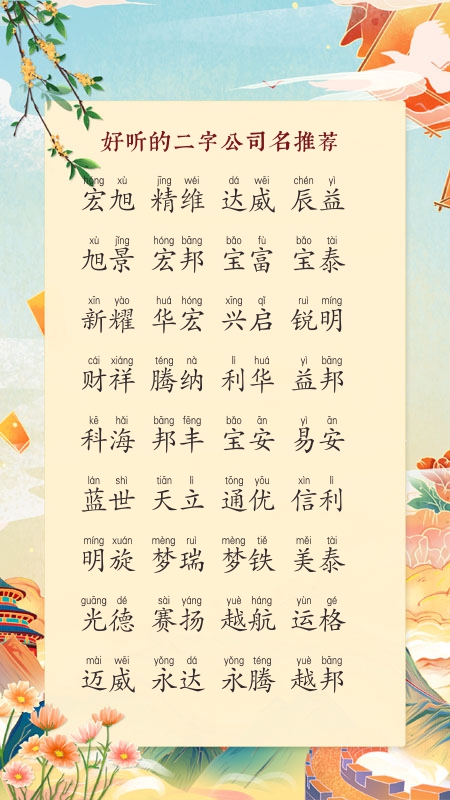 好听的二字公司名推荐
hóng xù jīng wéi dá wēi chén yì
宏旭 精维 达威 辰益
xù jǐng hóng bāng bǎo fù bǎo tài
旭景 宏邦 宝富 宝泰
xīn yào huá hóng xīng qǐ ruì míng
新耀 华宏 兴启 锐明
cái xiáng téng nà lì huá yì bāng
财祥 腾纳 利华 益邦
kē hǎi bāng fēng bǎo ān yì ān
科海 邦丰 宝安 易安
lán shì tiān lì tōng yōu xìn lì
蓝世 天立 通优 信利
míng xuán mèng ruì mèng tiě měi tài
明旋 梦瑞 梦铁 美泰
guāng dé sài yáng yuè háng yùn gé
光德 赛扬 越航 运格
mài wēi yǒng dá yǒng téng yuè bāng
迈威 永达 永腾 越邦